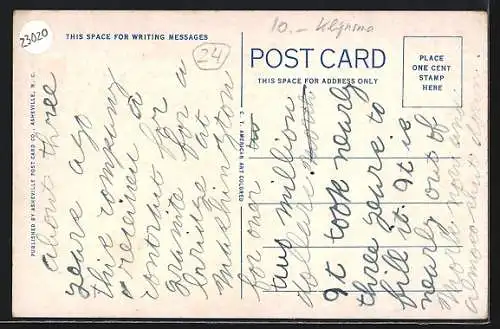 23020
10.- Klgnsma
24
THIS SPACE FOR WRITING MESSAGES
POST CARD
THIS SPACE FOR ADDRESS ONLY
PLACE
ONE CENT
STAMP
HERE
PUBLISHED BY ASHEVILLE POST CARD CO., ASHEVILLE, N. C.
C. T. AMERICAN ART COLORED
about three
years ago
this company
received a
contract for
granite for a
bridge at
Washington
for over two
two million
dollars
It took nearly
three years to
fill it. It is
nearly out of
work now and
almost